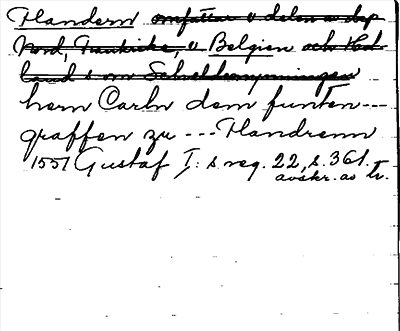 Flandern omfattar v delen av dep
Nord, Frankrike, o Belgien och Hol-
land s om Scheldemynningen
hern Carln dem funten ---
graffen zu --- Flandrenn
1551 Gustaf I: s reg. 22, s. 361.
avskr. av tr.